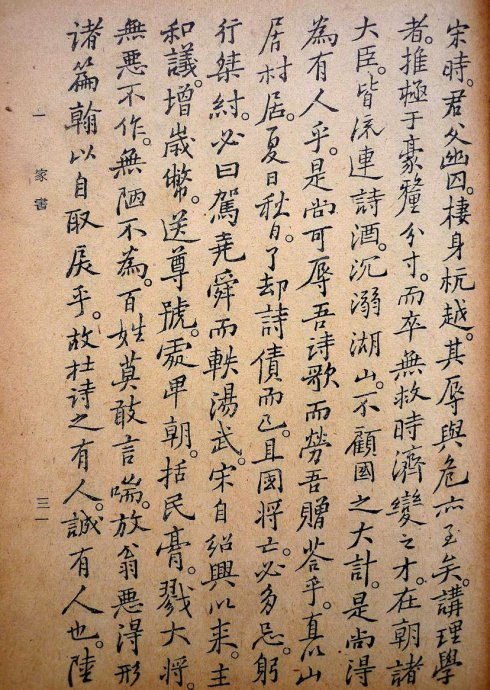 宋時。君父幽囚。棲身杭越。其辱與危亦至矣。講理學
者。推極于豪釐分寸。而卒無救時濟變之才。在朝諸
大臣。皆流連詩酒。沉溺湖山。不顧國之大計。是尚得
為有人乎。是尚可辱吾詩歌而勞吾贈荅乎。直以山
居村居。夏日秋日。了却詩債而已。且國將亡。必多忌。躬
行桀紂。必曰駕堯舜而軼湯武。宋自紹興以来。主
和議。增歲幣。送尊號。處卑朝。括民膏。戮大將。
無惡不作。無陋不為。百姓莫敢言喘。放翁惡得形
諸篇翰以自取戾乎。故杜詩之有人。誠有人也。陸
一 家書 三一